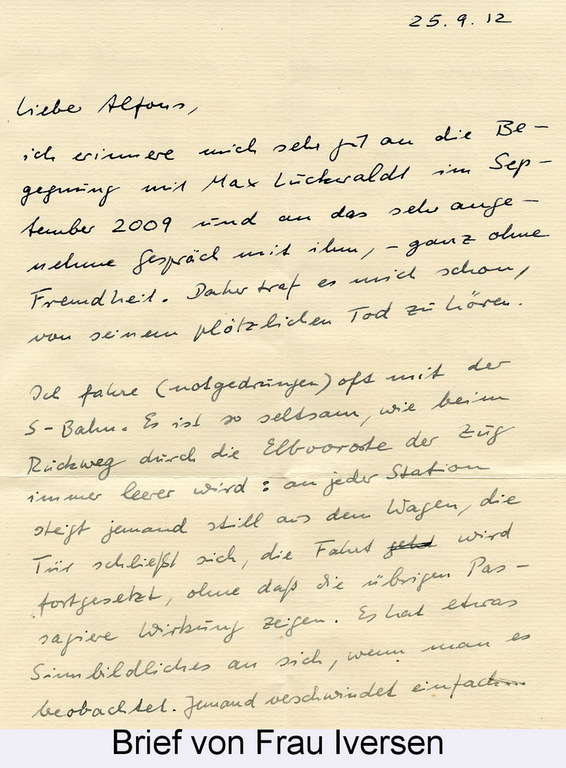 25.9.12
Lieber Alfons,
ich erinnere mich sehr gut an die Be-
gegnung mit Max Luckwaldt im Sep-
tember 2009 und an das sehr ange-
nehme Gespräch mit ihm, - ganz ohne
Fremdheit. Daher traf es mich schon,
von seinem plötzlichen Tod zu hören.
Ich fahre (notgedrungen) oft mit der
S-Bahn. Es ist so seltsam, wie beim
Rückweg durch die Elbvororte der Zug
immer leerer wird: an jeder Station
steigt jemand still aus dem Wagen, die
Tür schließt sich, die Fahrt geht wird
fortgesetzt, ohne daß die übrigen Pas-
sagiere Wirkung zeigen. Es hat etwas
Sinnbildliches an sich, wenn man es
beobachtet. Jemand verschwindet einfach...
Brief von Frau Iversen